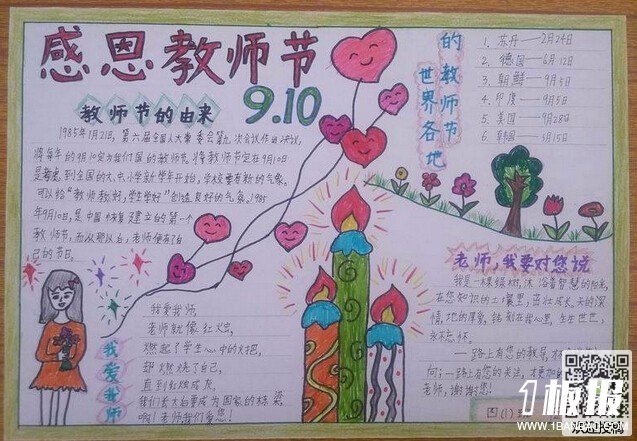 感恩教师节
9.10
教师节的由来
1985年1月21日，第六届全国人大常委会第九次会议作出决议，
将每年的9月10定为我们国的教师节。将教师节定在9月10日
到全国的大、中、小学新学年开始，学校要有新的气象。
可以给"教师教好，学生学好"创造良好的气氛。1985
年9月10日，是中国恢复建立的第一个
教师节，而从那以后，老师便有了自
己的节日。
世界各地
的教师节
1、苏丹——2月24日
2、德国——6月12日
3、朝鲜——9月5日
4、印度——9月5日
5、美国——9月28日
6、韩国——5月15日
我爱我师
我爱我师
老师就像红烛，
燃起了学生心中的火把，
却燃烧了自己，
直到红烛成灰。
我们长大白要成为国家的栋梁
啊！老师我们爱您！
老师，我要对您说
我是一棵绿树，沐浴着智慧的阳光，
在您知识的土壤里，茁壮成长。天的深
情，地的厚爱，铭刻在我心里，生生世世，
永存怀。
一路上有您的教导，
向；一路上有您的关注，
老师，谢谢您！
四(1)
1板报
WWW.1BANBAO.COM